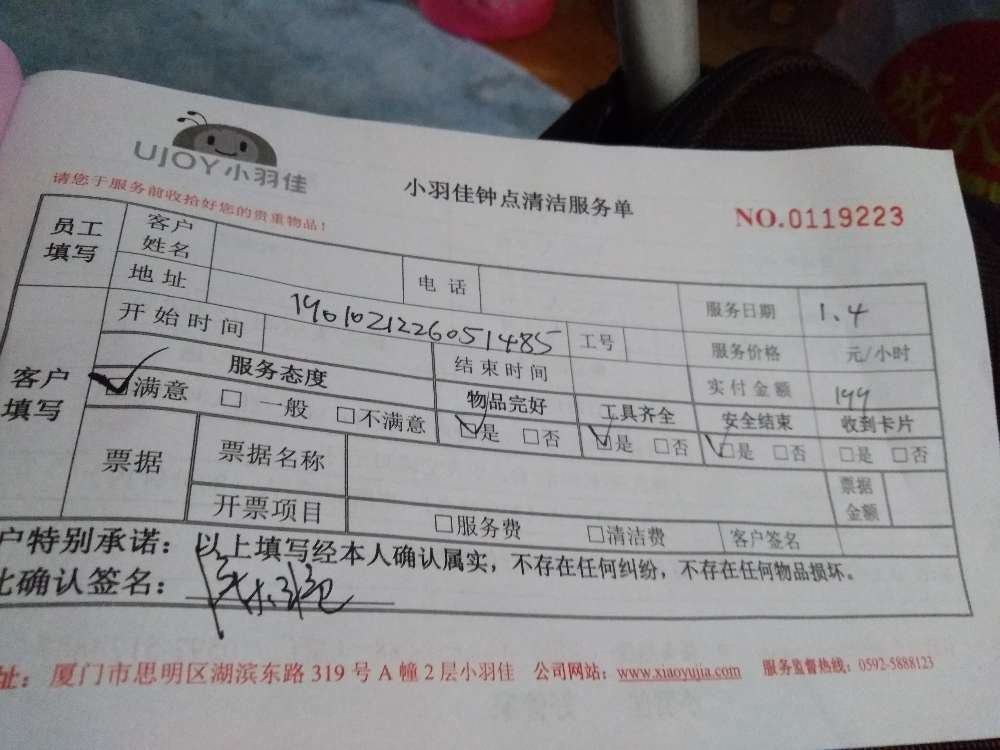 UJOY小羽佳
小羽佳钟点清洁服务单
NO.0119223
请您于服务前收拾好您的贵重物品!
员工填写 客户姓名 电话 服务日期 1.4
地址 1901021226051485 工号 服务价格 元/小时
客户填写 开始时间 结束时间 实付金额 199
服务态度 物品完好 工具齐全 安全结束 收到卡片
满意 □ 一般 □不满意 是 □否 是 □否 □是 □否 □是 □否
票据 票据名称 票据金额
开票项目 □服务费 □清洁费 客户签名
户特别承诺：以上填写经本人确认属实，不存在任何纠纷，不存在任何物品损坏。
比确认签名：
址：厦门市思明区湖滨东路319号A幢2层小羽佳 公司网站：www.xiaoyujia.com 服务监督热线：0592-5888123